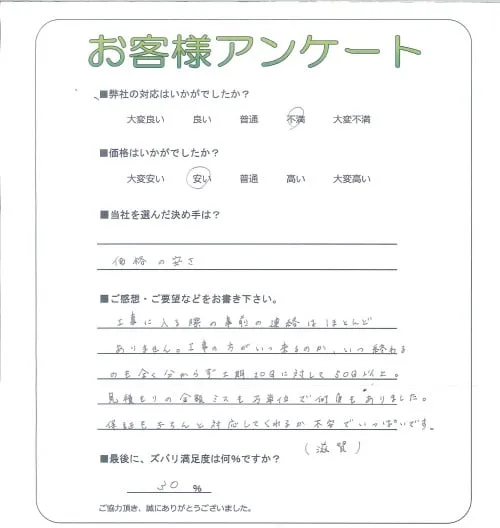 お客様アンケート
■弊社の対応はいかがでしたか？
大変良い 良い 普通 不満 大変不満
■価格はいかがでしたか？
大変安い 安い 普通 高い 大変高い
■当社を選んだ決め手は？
価格の安さ
■ご感想・ご要望などをお書き下さい。
工事に入る際の事前の連絡はほとんど
ありません。工事の方がいつ来るのか、いつ終れる
のも全く分からず工期20日に対して50日以上。
見積もりの金額ミスも万単位で何度もありました。
保証もきちんと対応してくれるか不安でいっぱいです。
(滋賀)
■最後に、ズバリ満足度は何%ですか？
30 %
ご協力頂き、誠にありがとうございました。